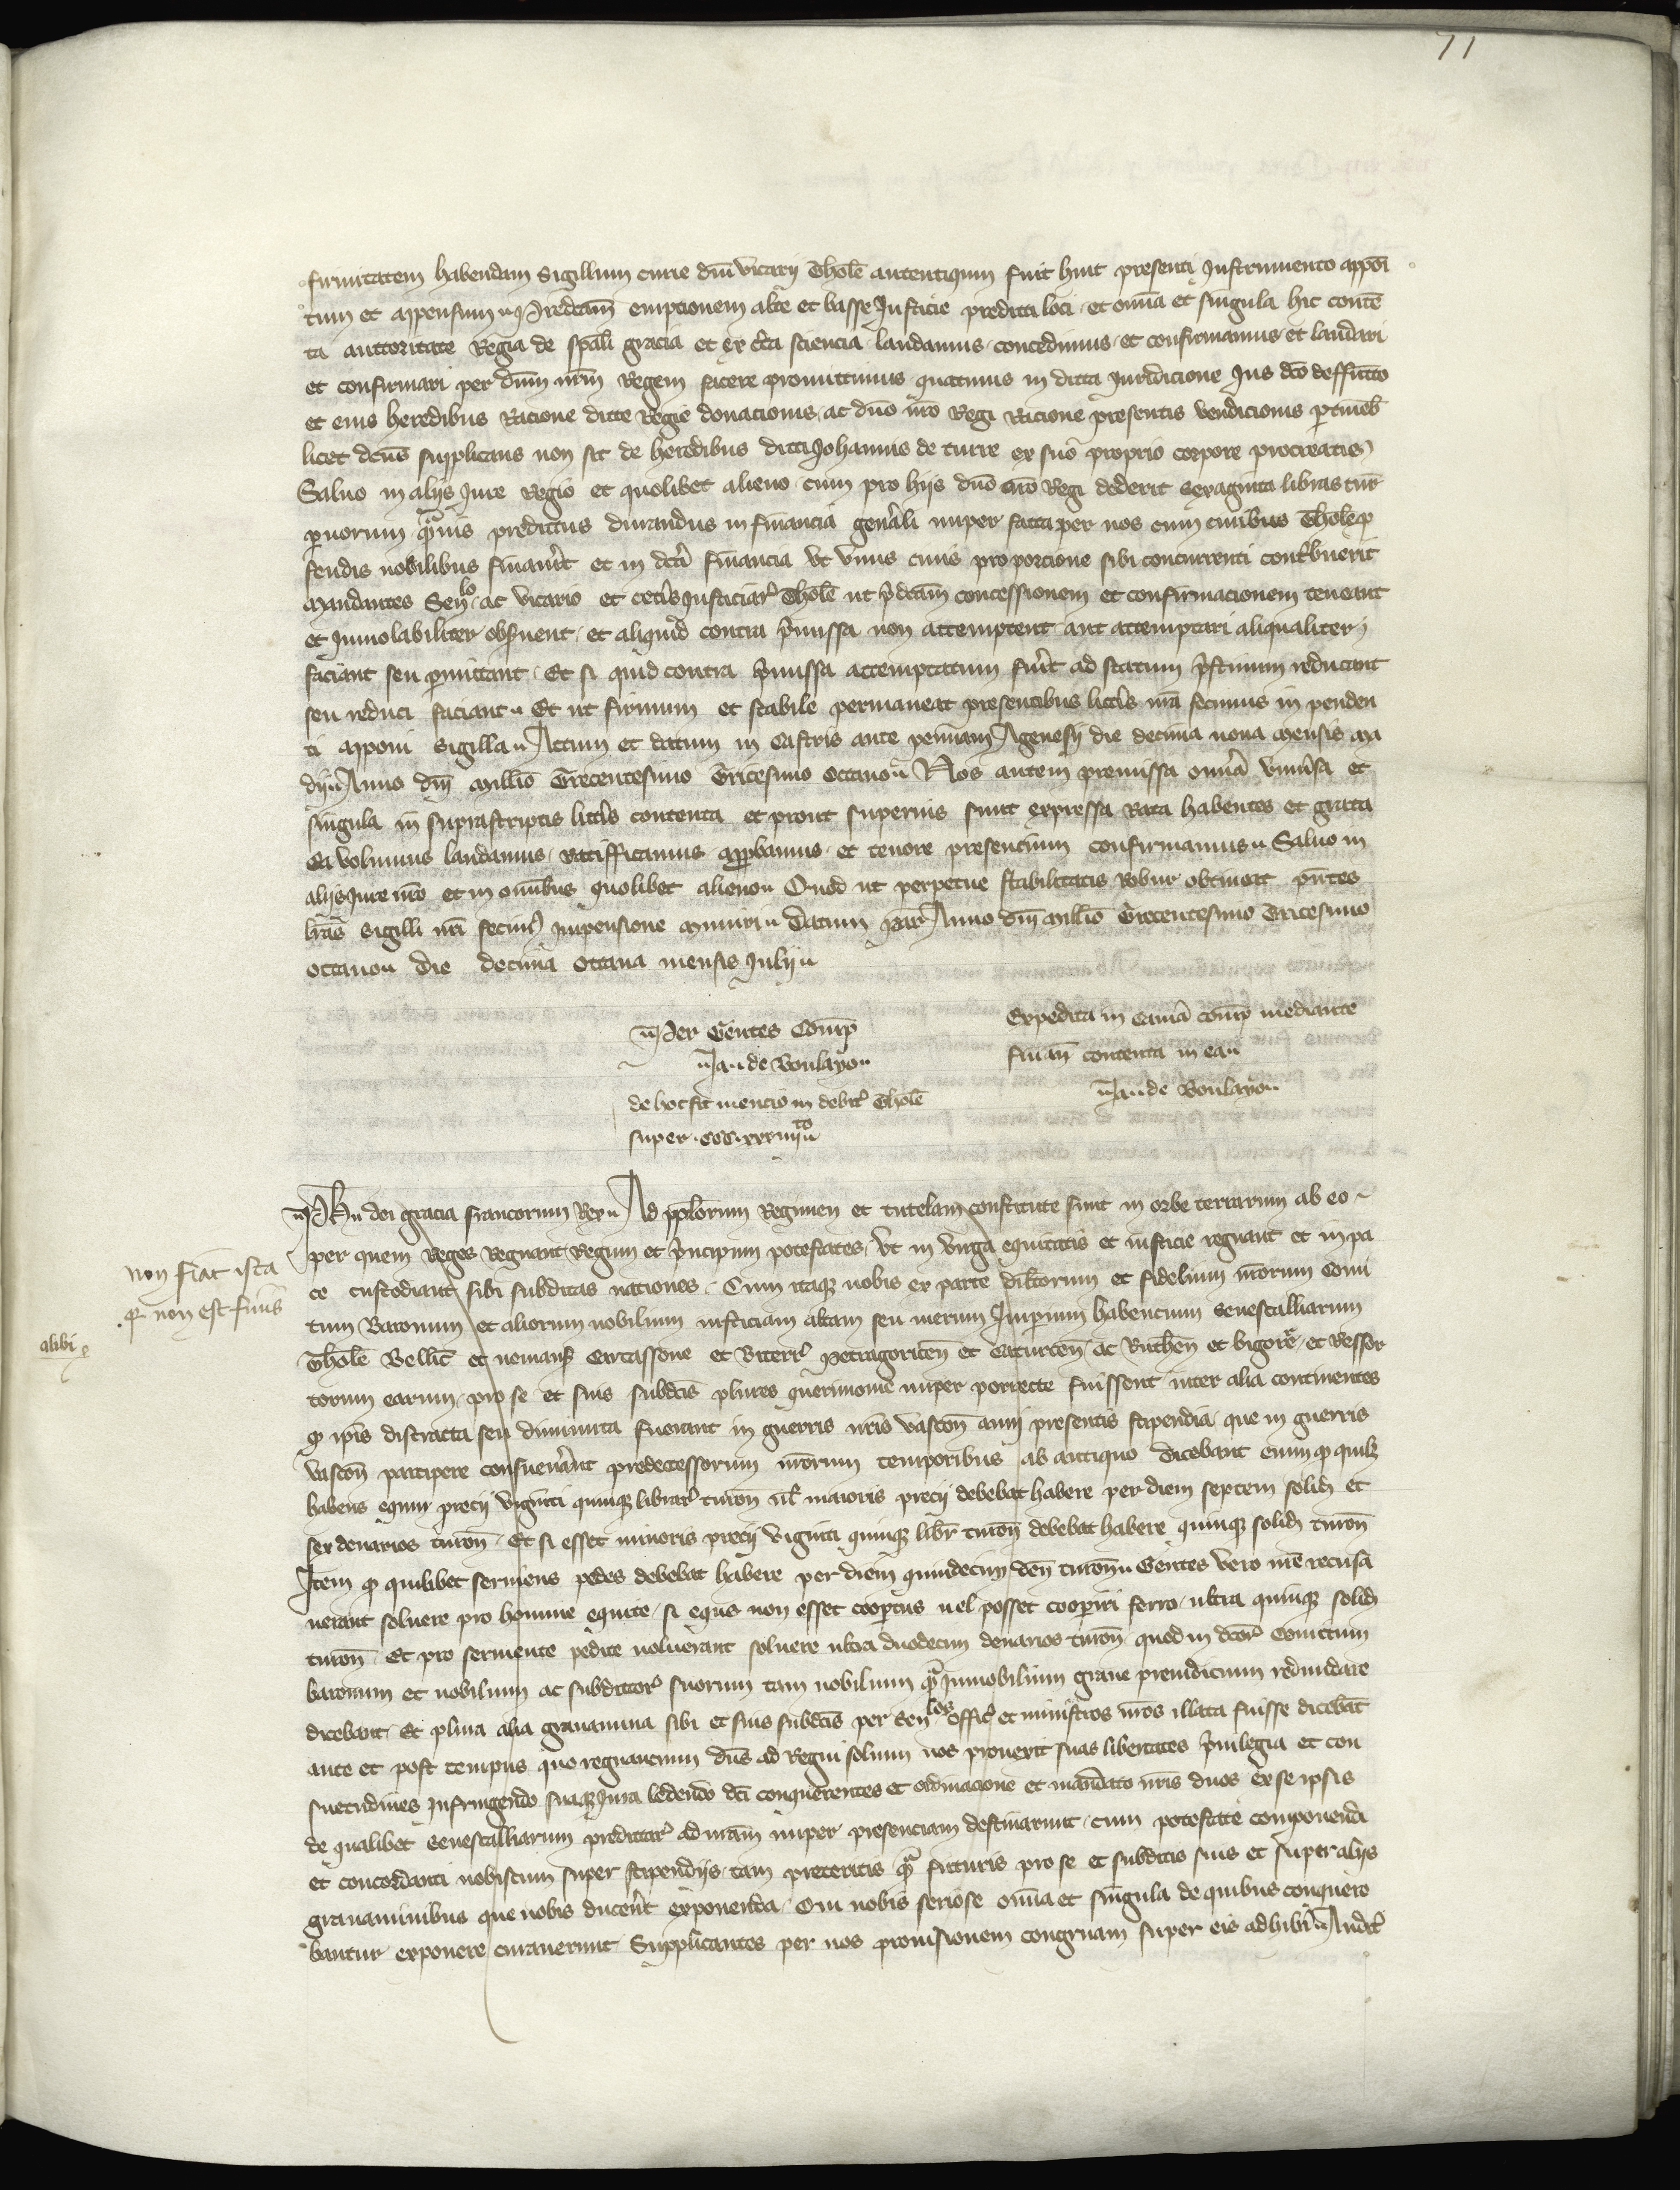 71
firmitatem habendam Sigillum curie dni vicarij Thole autentiquum fuit huic presenti Instrumento appoi
tum et appensum Predcam empcionem alte et basse Justicie predicti loci et omia et singula hic conte
ta auctoritate Regia de spali gracia et ex cta sciencia laudamus concedimus et confirmamus et laudari
et confirmari per dnm nrm Regem facere promittimus quatinus in dicta juridicione Jus dco deffucto
et eius heredibus Racione dicte Regie donacionis ac dno nro Regi Racione presentis vendicionis ptineb
licet dcus supplicans non sit de heredibus dicti Johannis de turre ex suo proprio corpore procreatis
Saluo in alijs Jure Regio et quolibet alieno cum pro hijs dno nro Regi dederit sexaginta libras tur
paruorum quis predictus durandus in financia genali nuper facta per nos cum ciuibus Thole p
feudis nobilibus finauit et in dca financia vt vnus ciuis pro porcione sibi concurrenti contbuerit
Mandantes Senlo ac vicario et cetis Justiciar Thole ut pdcam concessionem et confirmacionem teneant
et Inuiolabiliter obseruent et aliquid contra pmissa non attemptent aut attemptari aliqualiter
faciant seu pmittant Et si quid contra pmissa attemptatum fuit ad statum pstinum reducant
seu reduci faciant Et ut firmum et stabile permaneat presentibus littis nra fecimus in penden
ti apponi Sigilla Actum et datum in Castris ante pennam Agenesij die decima nona mensis ma
dij Anno dni Millio Trecentesimo Tricesimo octauo Nos autem premissa omia vniusa et
singula in suprascriptis littis contenta et prout superius sunt expressa Rata habentes et grata
Ea volumus laudamus ratifficamus appbamus et tenore presentium confirmamus Saluo in
alijs Jure nro et in omibus quolibet alieno Quod ut perpetue stabilitatis robur obtineat pntes
lras sigilli nri fecim impensione muniri Datum par Anno dni Millio Trecentesimo Tricesimo
octauo die decima octaua mensis Julij
Per Gentes Comp
Ja de Boulayo
de hoc fit mencio in debit Thole
super CCC xxxiiijto
Expedita in cama comp mediante
finan contenta in ea
Ja de Boulayo
Ph dei gracia francorum Rex Ad pplorum Regimen et tutelam constitute sunt in orbe terrarum ab eo
per quem Reges Regnant Regum et pncipum potestates vt in virga equitatis et iusticie regnant et in pa
ce custodiant sibi subditas naciones Cum itaque nobis ex parte dilctorum et fidelium nrorum Comi
tum Baronum et aliorum nobilium iusticiam altam seu merum Imperium habencium senescalliarum
Thole Bellic et nemaus Carcassone et Biterr Petragoricen et Caturcen ac Ruthen et bigore et ressor
torum earum pro se et suis subdcis plures querimonie nuper porrecte fuissent inter alia continentes
q ipis distracta seu diminuta fuerant in guerris nris vascon anni presentis stipendia que in guerris
vascon percipere consueuerant predecessorum nrorum temporibus ab antiquo dicebant enim q quilz
habens equm precij viginti quinque librar turon ul maioris precij debebat habere per diem septem solid et
sex denarios turon Et si esset minoris precij viginti quinque libr turon debebat habere quinque solid turon
Item q quilibet seruiens pedes debebat habere per diem quindecim den turon Gentes vero nre recusa
uerant soluere pro homine equite si equs non esset coopertus uel posset cooperiri ferro ultra quinque solid
turon Et pro seruiente pedite noluerant soluere ultra duodecim denarios turon quod in dcor Comitum
baronum et nobilium ac subdictor suorum tam nobilium qa Innobilium graue preiudicium redundare
dicebant Et plura alia grauamina sibi et suis subdcis per Senlos offic et ministros nros illata fuisse dicebat
ante et post tempus quo regnancium dns ad Regni solium nos prouexit suas libertates pruilegia et con
suetudines Infringendo suaque Jura ledendo dci conquerentes ex ordinacione et mandato nris duos ex se ipsis
de qualibet senescalliarum predictar ad nram nuper presenciam destinarunt cum potestate componendi
et concordanti nobiscum super stipendijs tam preteritis qa futuris pro se et subditis suis et super alijs
grauaminibus que nobis ducent exponenda Qui nobis seriose omia et singula de quibus conquere
bantur exponere curauerunt Supplicantes per nos prouisionem congruam super eis adhibi Audit
non fiat ista
q non est finis
alibi